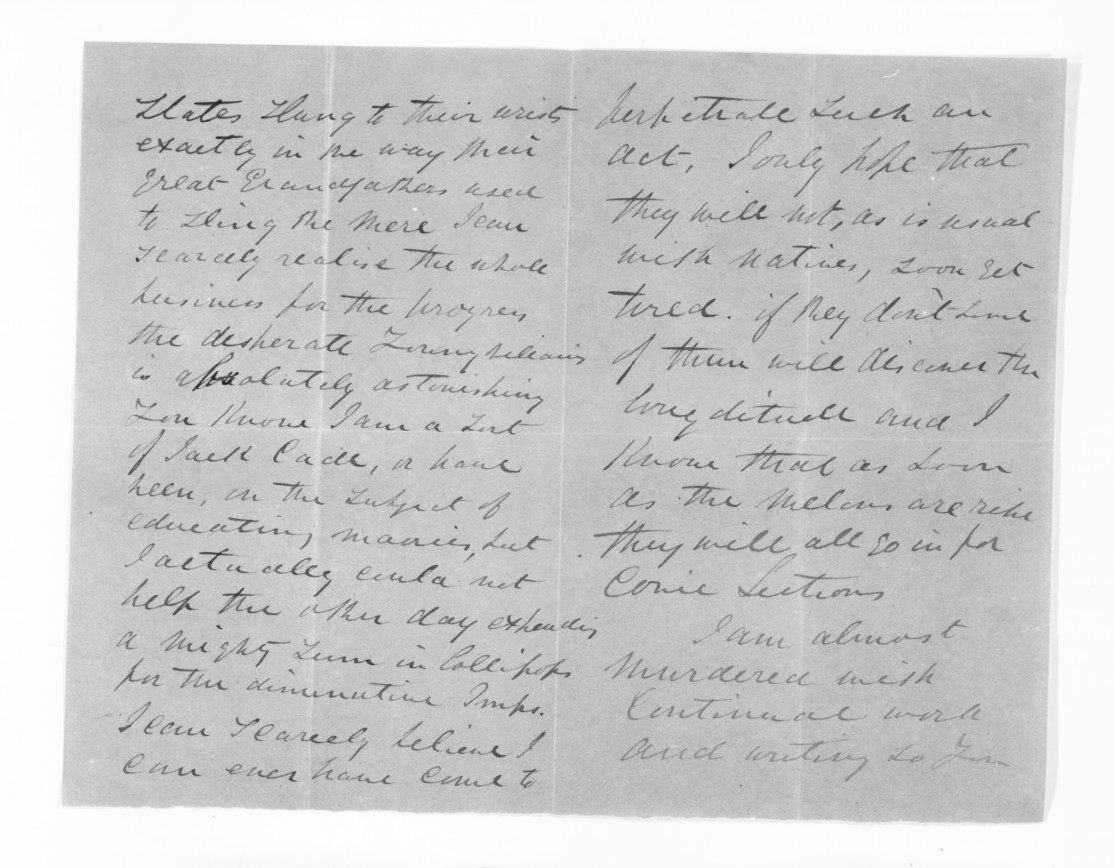 Slates slung to their wrists
exactly in the way their
great Grandfathers used
to sling the mere I can
scarcely realise the whole
business for the progress
the desperate Young villians
is absolutely astonishing
You know I am a sort
of Jack Cade, or have
been, on the subject of
educating maories, but
I actually could not
help the other day expending
a mighty sum in lollipops
for the diminutive Imps.
I can scarcely believe I
can ever have come to
perpetrate such an
act, I only hope that
they will not, as is usual
with natives, soon get
tired. if they don't some
of them will discover the
longditude and I
know that as soon
as the melons are ripe
they will all go in for
Conic Sections
I am almost
murdered with
Continual work
and writing so You